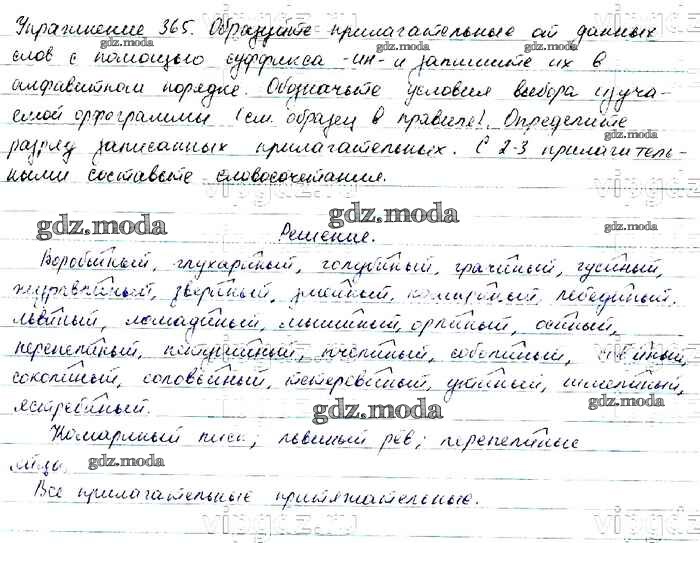 vipgdz.ru
Упражнение 365. Образуйте прилагательные от данных
gdz.moda gdz.moda gdz.moda
слов с помощью суффикса -ин- и запишите их в
алфавитном порядке. Обозначьте условия выбора изуча-
емой орфограммы (см. образец в правиле). Определите
gdz.moda gdz.moda gdz.moda
разряд записанных прилагательных. С 2-3 прилагатель-
ными составьте словосочетания.
vipgdz.ru
gdz.moda gdz.moda
Решение.
Воробьиный, глухариный, голубиный, грачиный, гусиный,
журавлиный, звериный, змеиный, комариный, лебединый,
львиный, лошадиный, мышиный, орлиный, осиный,
перепелиный, петушиный, пчелиный, соболиный, совиный,
соколиный, соловьиный, тетеревиный, утиный, шмелиный,
ястребиный.
gdz.moda gdz.moda gdz.moda
Комариный писк, львиный рёв, перепелиные
яйца.
gdz.moda gdz.moda
Все прилагательные притяжательные.
vipgdz.ru vipgdz.ru
gdz.moda gdz.moda